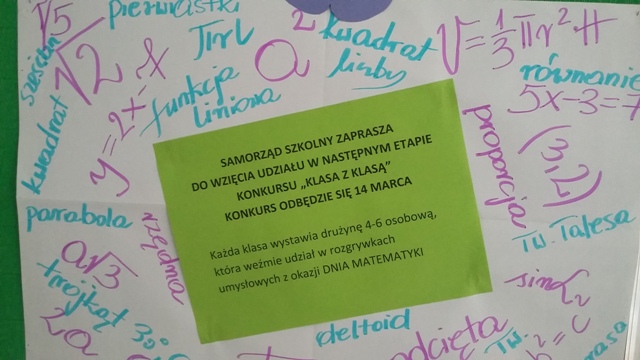 √5
pierwiastki
πrl
a²
kwadrat
liczby
V=1/3πr²H
sześcian
√2
-x
funkcja
liniowa
równanie
5x-3=7
kwadrat
y=2x-
proporcja
(3,2)
SAMORZĄD SZKOLNY ZAPRASZA
DO WZIĘCIA UDZIAŁU W NASTĘPNYM ETAPIE
KONKURSU „KLASA Z KLASĄ"
KONKURS ODBĘDZIE SIĘ 14 MARCA
Każda klasa wystawia drużynę 4-6 osobową,
która weźmie udział w rozgrywkach
umysłowych z okazji DNIA MATEMATYKI
parabola
rzędna
tw. Talesa
a√3
trójkąt
sin
2a
30°
deltoid
odcięta
tw.